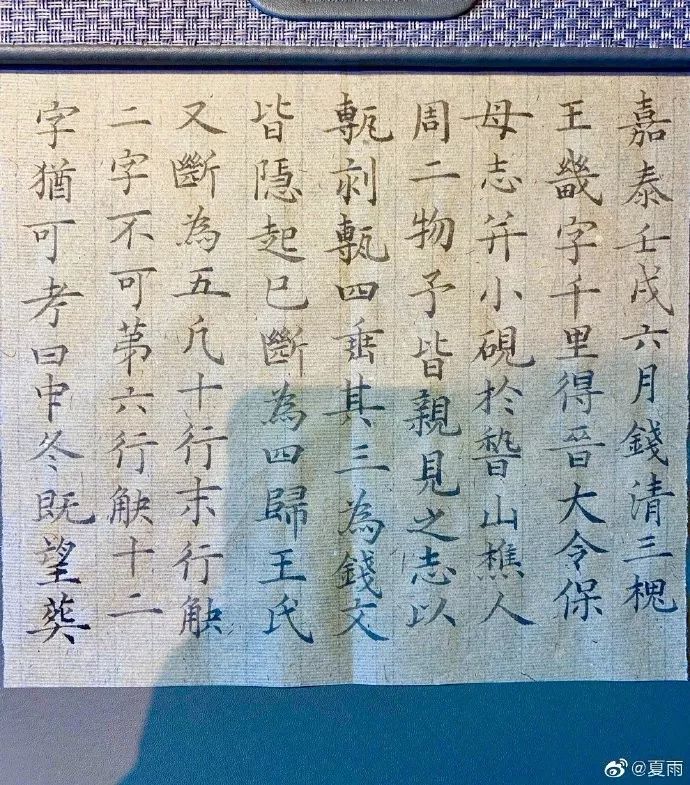 嘉泰壬戌六月錢清三槐
王畿字千里得晉大令保
母志并小硯於稽山樵人
周二物予皆親見之志以
甎刻甎四垂其三為錢文
皆隱起已斷為四歸王氏
又斷為五凡十行末行觖
二字不可苐六行觖十二
字猶可考曰中冬既望葬
@夏雨